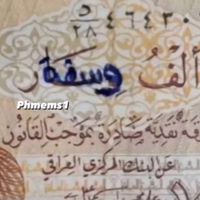 ٥/٢٨ ٤٦٤٣٠
ألف وسفة
Phmems1
فة نقدية صادرة بموجب القانون
عن البنك المركزي العراقي